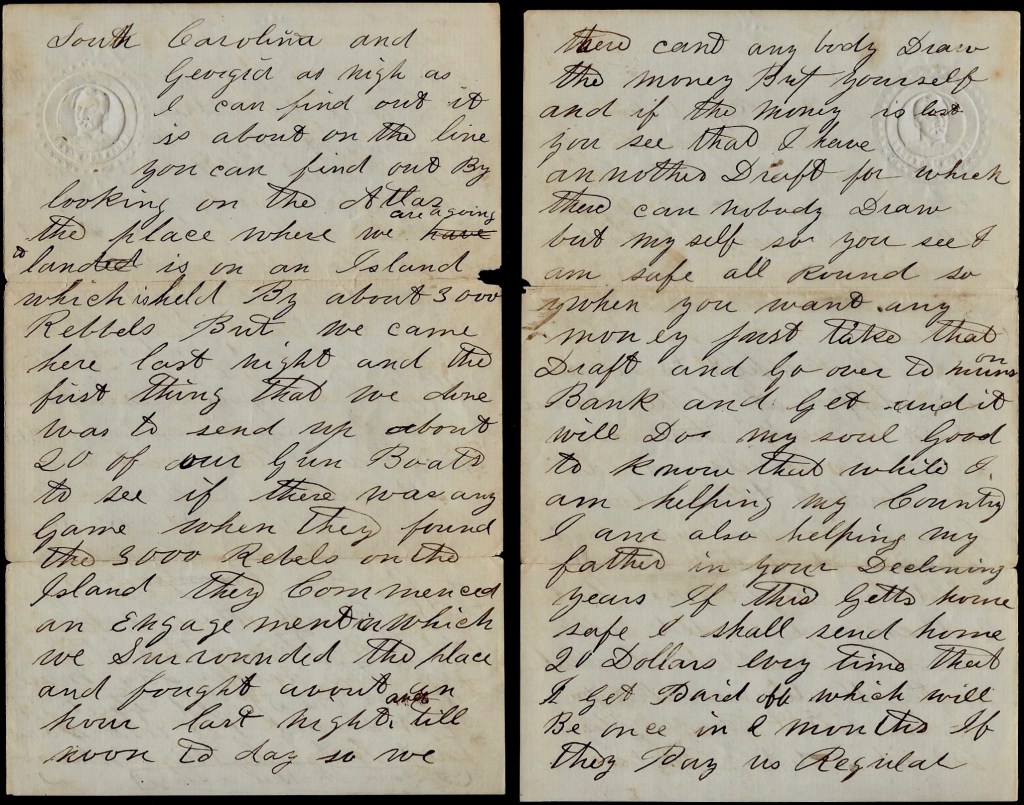 South Carolina and
Georgia as nigh as
I can find out it
is about on the line
you can find out By
looking on the Atlas
are a going
the place where we have
to landed is on an Island
which is held By about 3000
Rebbels But we came
here last night and the
first thing that we done
was to send up about
20 of our Gun Boats
to see if there was any
Game when they found
the 3000 Rebels on the
Island they Commenced
an Engagement in which
we Surrounded the place
and fought about an
hour last night and till
noon to day so we
there cant any body Draw
the money But yourself
and if the money is lost
you see that I have
annother Draft for which
there can nobody Draw
but my self so you see I
am safe all Round so
when you want any
money just take that
Draft and Go over to
Bank and Get and it
will Do my soul Good
to know that while I
am helping my Country
I am also helping my
father in your Declining
years If this Getts home
safe I shall send home
20 Dollars evry time that
I Get Paid off which will
Be once in 2 months If
they Pay us Regular